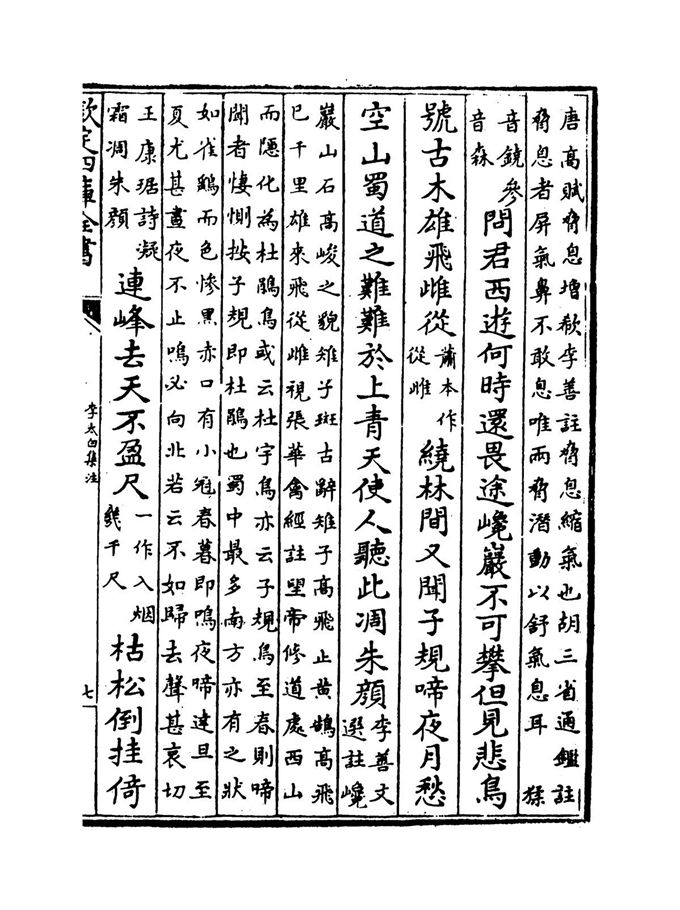 唐高賦脅息增欷李善註脅息縮氣也胡三省通鑑註
脅息者屏氣鼻不敢息唯兩脅潛動以舒氣息耳　猱
音鐃參音森問君西遊何時還畏途巉巖不可攀但見悲鳥
號古木雄飛雌從蕭本作從雌繞林間又聞子規啼夜月愁
空山蜀道之難難於上青天使人聽此凋朱顏李善文選註巉
巖山石高峻之貌雉子斑古辭雉子高飛止黃鵠高飛
已千里雄來飛從雌視張華禽經註望帝修道處西山
而隱化為杜鵑鳥或云杜宇鳥亦云子規鳥至春則啼
聞者悽惻按子規即杜鵑也蜀中最多南方亦有之狀
如雀鷂而色慘黑赤口有小冠春暮即鳴夜啼達旦至
夏尤甚晝夜不止鳴必向北若云不如歸去聲甚哀切
王康琚詩凝霜凋朱顏連峰去天不盈尺一作入烟幾千尺枯松倒挂倚
欽定四庫全書
李太白集注
七